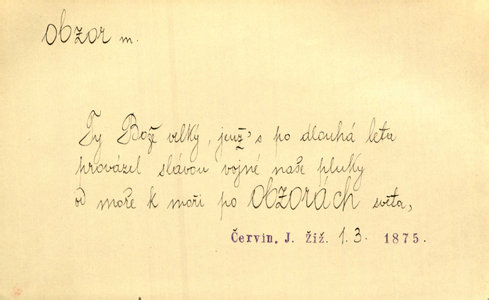 obzor m.
Ty Bože velký, jenž's po dlouhá leta
provázel slávou vojné naše pluky
od moře k moři po obzorách světa,
Červin. J. Žiž. 1.3. 1875.